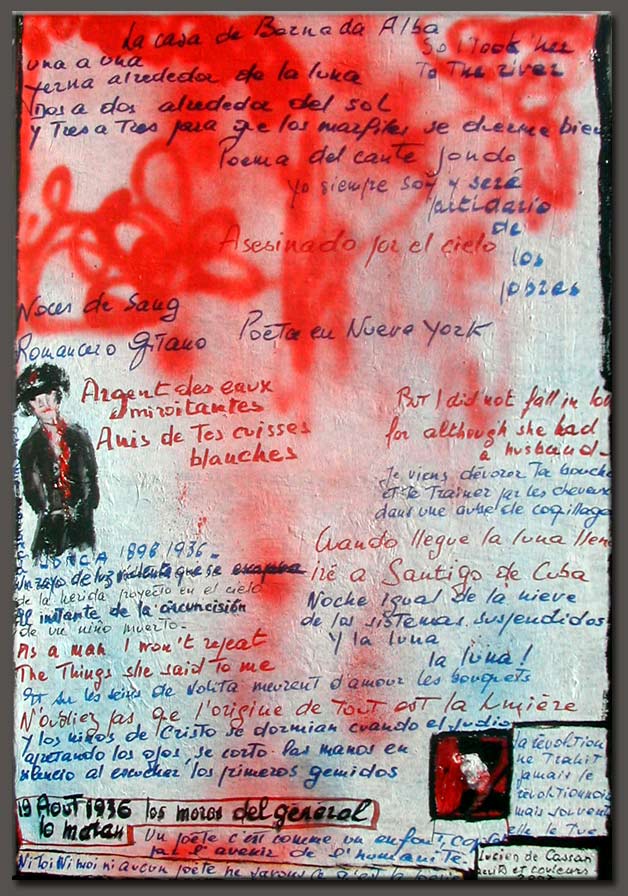 La casa de Bernada Alba
So I took her
To The river
una a una
yerna alrededor de la luna
Dos a dos alrededor del sol
y Tres a Tres para que los marfiles se duerme bien
Poema del cante jondo
yo siempre soy y seré
partidario
de
los
pobres
Asesinado por el cielo
Noces de Sang
Romancero Gitano
Poëta en Nueva York
Argent des eaux
miroitantes
Anis de Tes cuisses
blanches
But I did not fall in lo
for although she had
a husband
Je viens dévorer Ta bouche
et te Trainer par les cheveux
dans une aube de coquillage
LORCA 1898 1936
Un rayo de luz violenta que se
de la herida proyecto en el cielo
el instante de la circuncisión
de un niño muerto.
Cuando llegue la luna llen
iré a Santigo de Cuba
Noche igual de la nieve
de los sistemas suspendidos
y la luna
la luna!
As a man I won't repeat
The Things she said to me
Et sur les seins de Lolita meurent d'amour les bouquets
N'oubliez pas que l'origine de Tout est la lumière
y los niños de Cristo se dormian cuando el Judio
apretando los ojos, se corto las manos en
silencio al escuchar los primeros gemidos
la révolution
ne Trahit
jamais le
révolutionnaire
mais souvent
elle le Tue
19 Aout 1936 los moros del général
lo matan
Un poète c'est comme un enfant,
l'avenir de l'humanité.
Ni toi Ni moi ni aucun poète ne savons
Lucien de Cassan
écrits et couleurs